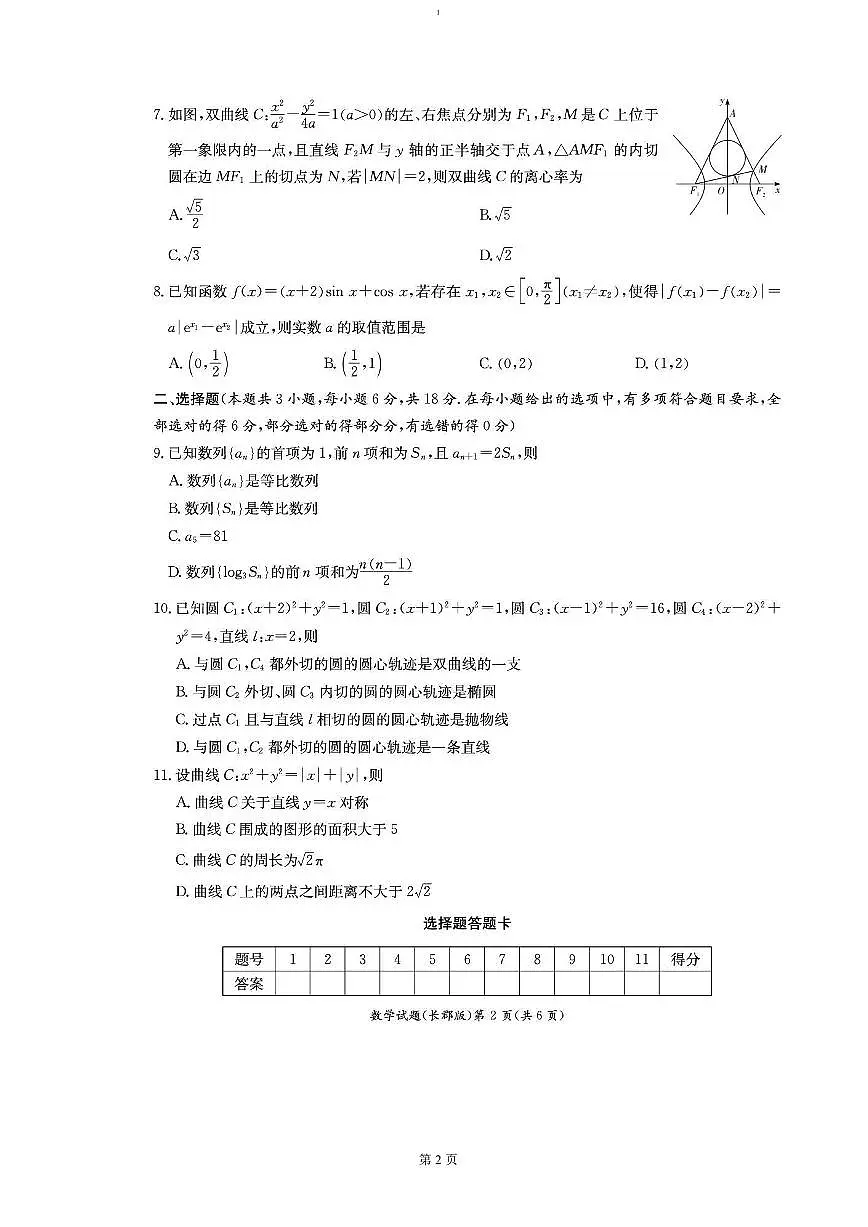 1
7. 如图,双曲线 C:x²/a²−y²/4a=1(a>0)的左、右焦点分别为 F₁,F₂,M 是 C 上位于
第一象限内的一点,且直线 F₂M 与 y 轴的正半轴交于点 A,△AMF₁ 的内切
圆在边 MF₁ 上的切点为 N,若|MN|=2,则双曲线 C 的离心率为
y A M N F₁ O F₂ x
A. √5/2 B. √5
C. √3 D. √2
8. 已知函数 f(x)=(x+2)sin x+cos x,若存在 x₁,x₂∈[0,π/2](x₁≠x₂),使得|f(x₁)−f(x₂)|=
a|eˣ¹−eˣ²|成立,则实数 a 的取值范围是
A. (0,1/2) B. (1/2,1) C. (0,2) D. (1,2)
二、选择题(本题共 3 小题,每小题 6 分,共 18 分.在每小题给出的选项中,有多项符合题目要求,全
部选对的得 6 分,部分选对的得部分分,有选错的得 0 分)
9. 已知数列{aₙ}的首项为 1,前 n 项和为 Sₙ,且 aₙ₊₁=2Sₙ,则
A. 数列{aₙ}是等比数列
B. 数列{Sₙ}是等比数列
C. a₅=81
D. 数列{log₃Sₙ}的前 n 项和为n(n−1)/2
10. 已知圆 C₁:(x+2)²+y²=1,圆 C₂:(x+1)²+y²=1,圆 C₃:(x−1)²+y²=16,圆 C₄:(x−2)²+
y²=4,直线 l:x=2,则
A. 与圆 C₁,C₄ 都外切的圆的圆心轨迹是双曲线的一支
B. 与圆 C₂ 外切、圆 C₃ 内切的圆的圆心轨迹是椭圆
C. 过点 C₁ 且与直线 l 相切的圆的圆心轨迹是抛物线
D. 与圆 C₁,C₂ 都外切的圆的圆心轨迹是一条直线
11. 设曲线 C:x²+y²=|x|+|y|,则
A. 曲线 C 关于直线 y=x 对称
B. 曲线 C 围成的图形的面积大于 5
C. 曲线 C 的周长为√2π
D. 曲线 C 上的两点之间距离不大于 2√2
选择题答题卡
题号 1 2 3 4 5 6 7 8 9 10 11 得分
答案
数学试题(长郡版)第 2 页(共 6 页)
第 2 页